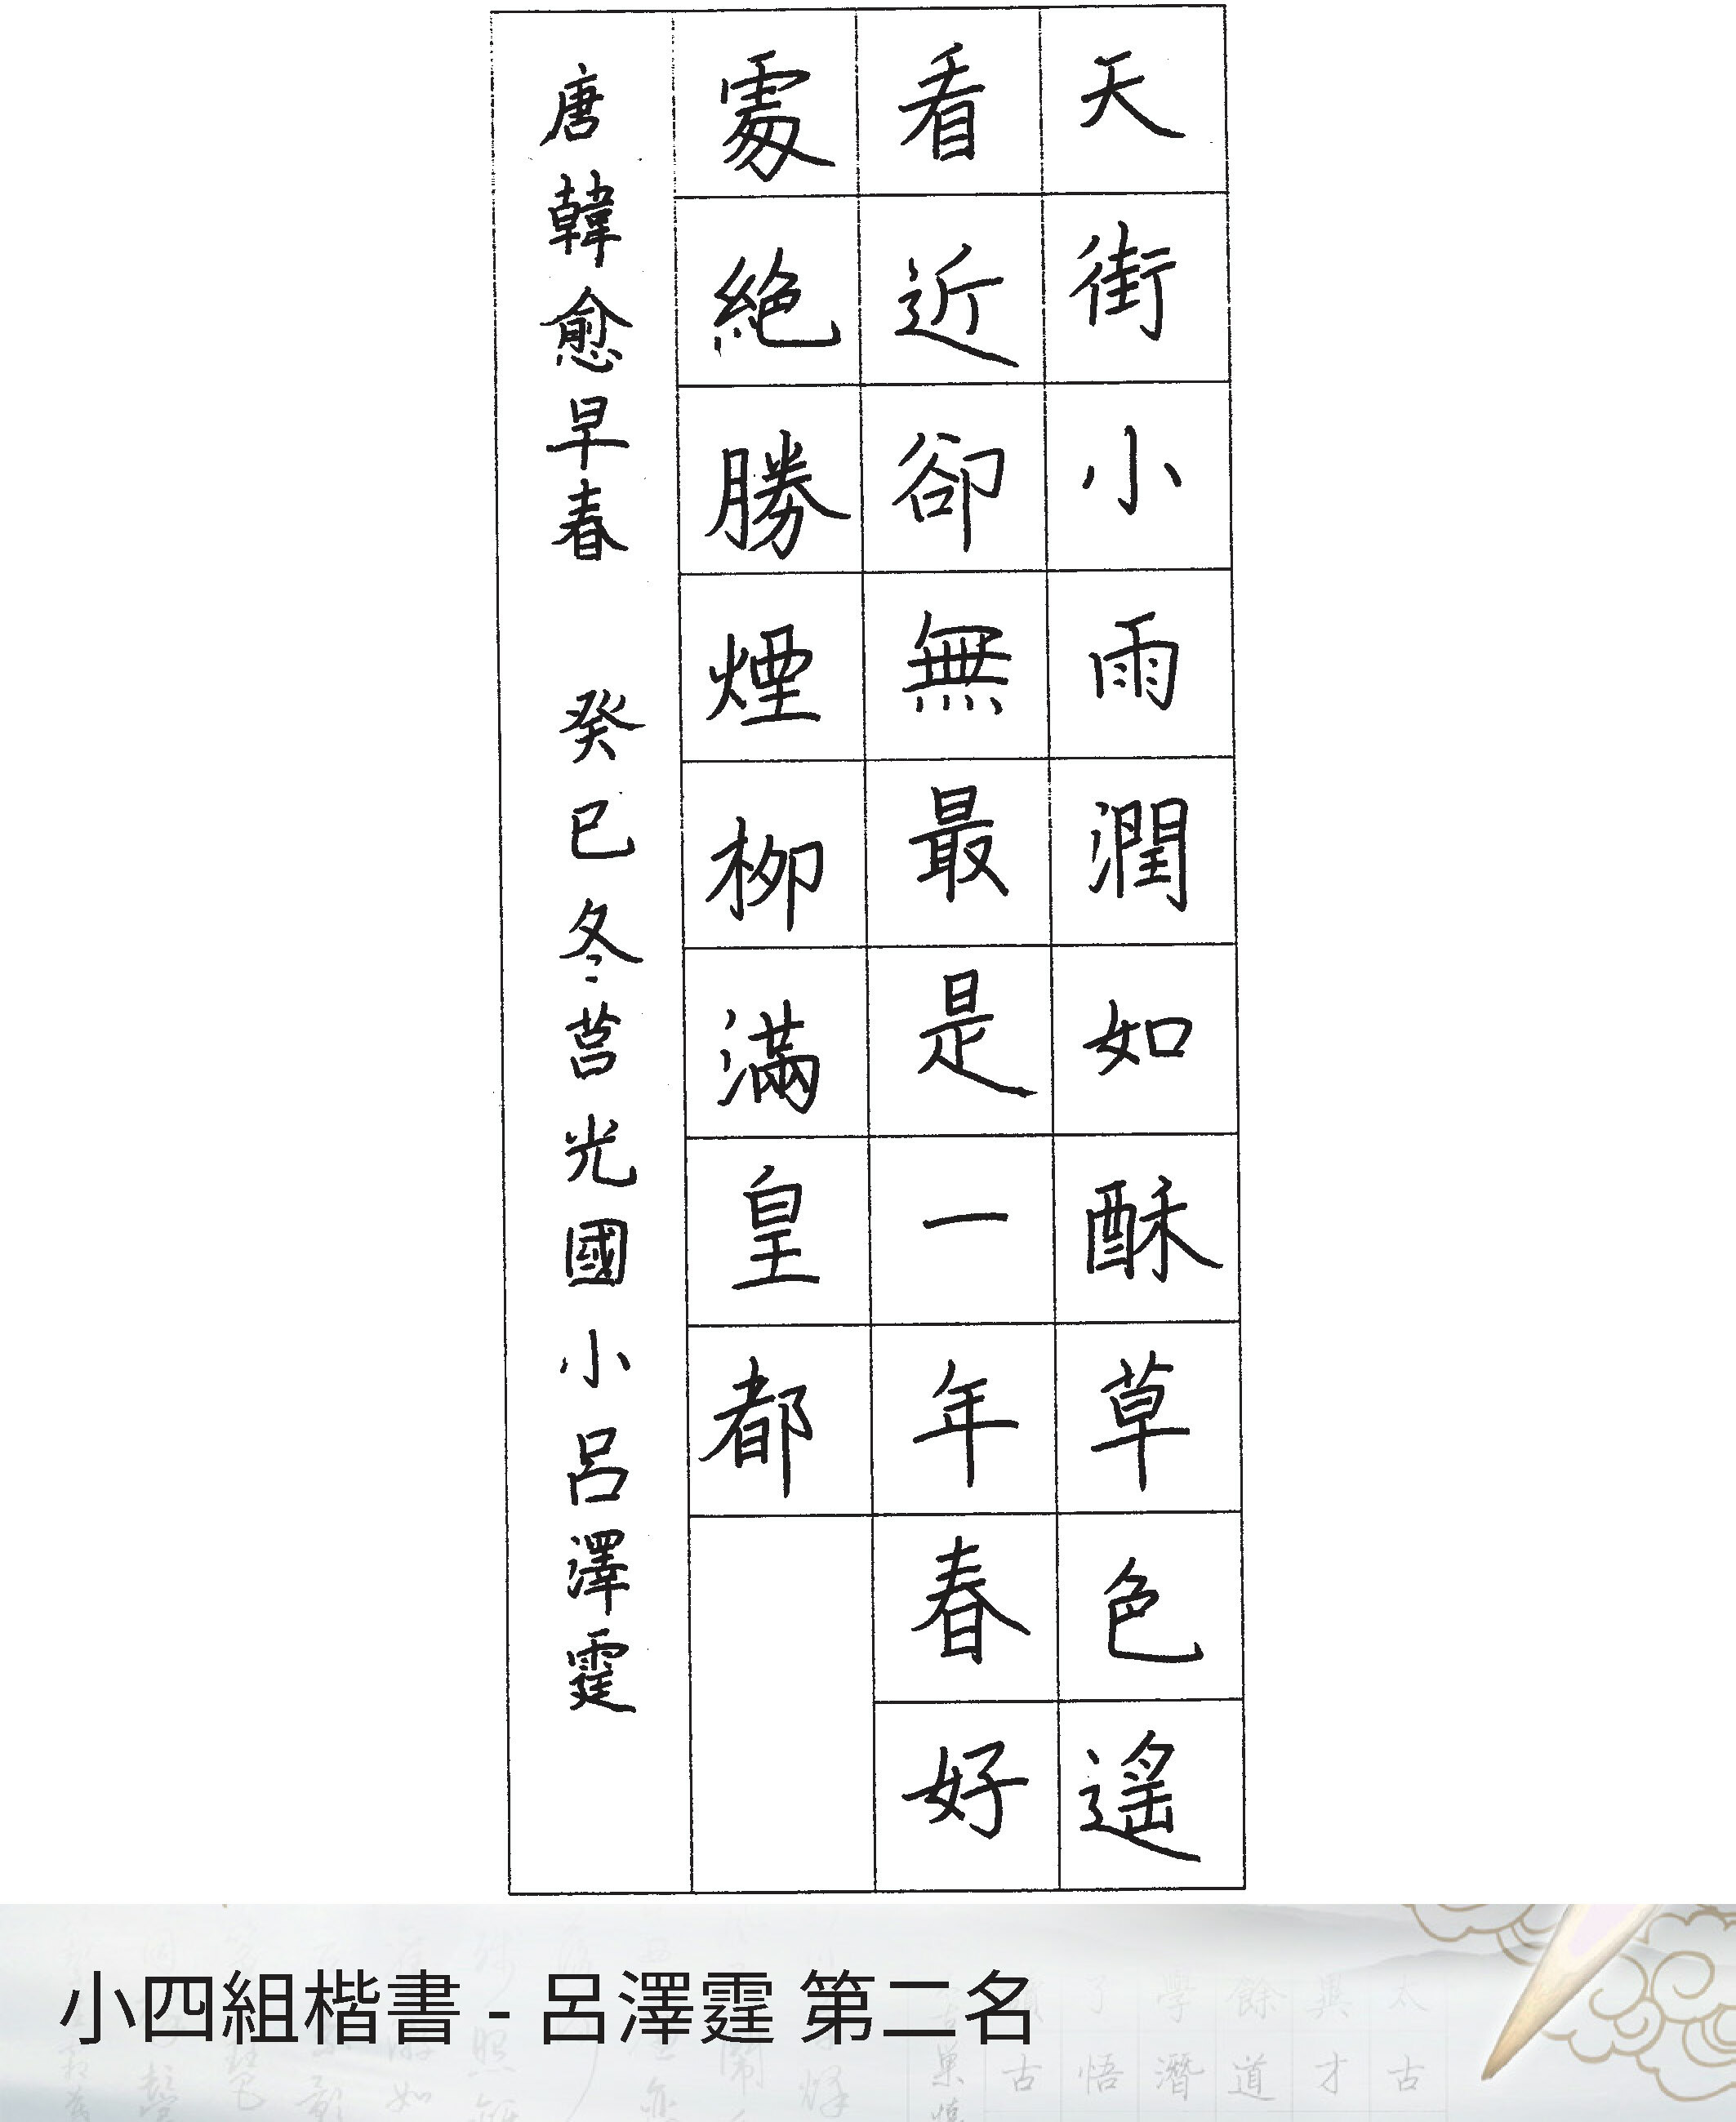 天街小雨潤如酥草色遙
看近卻無最是一年春好
處絕勝煙柳滿皇都
唐韓愈早春 癸巳冬莒光國小呂澤霆
小四組楷書 - 呂澤霆 第二名